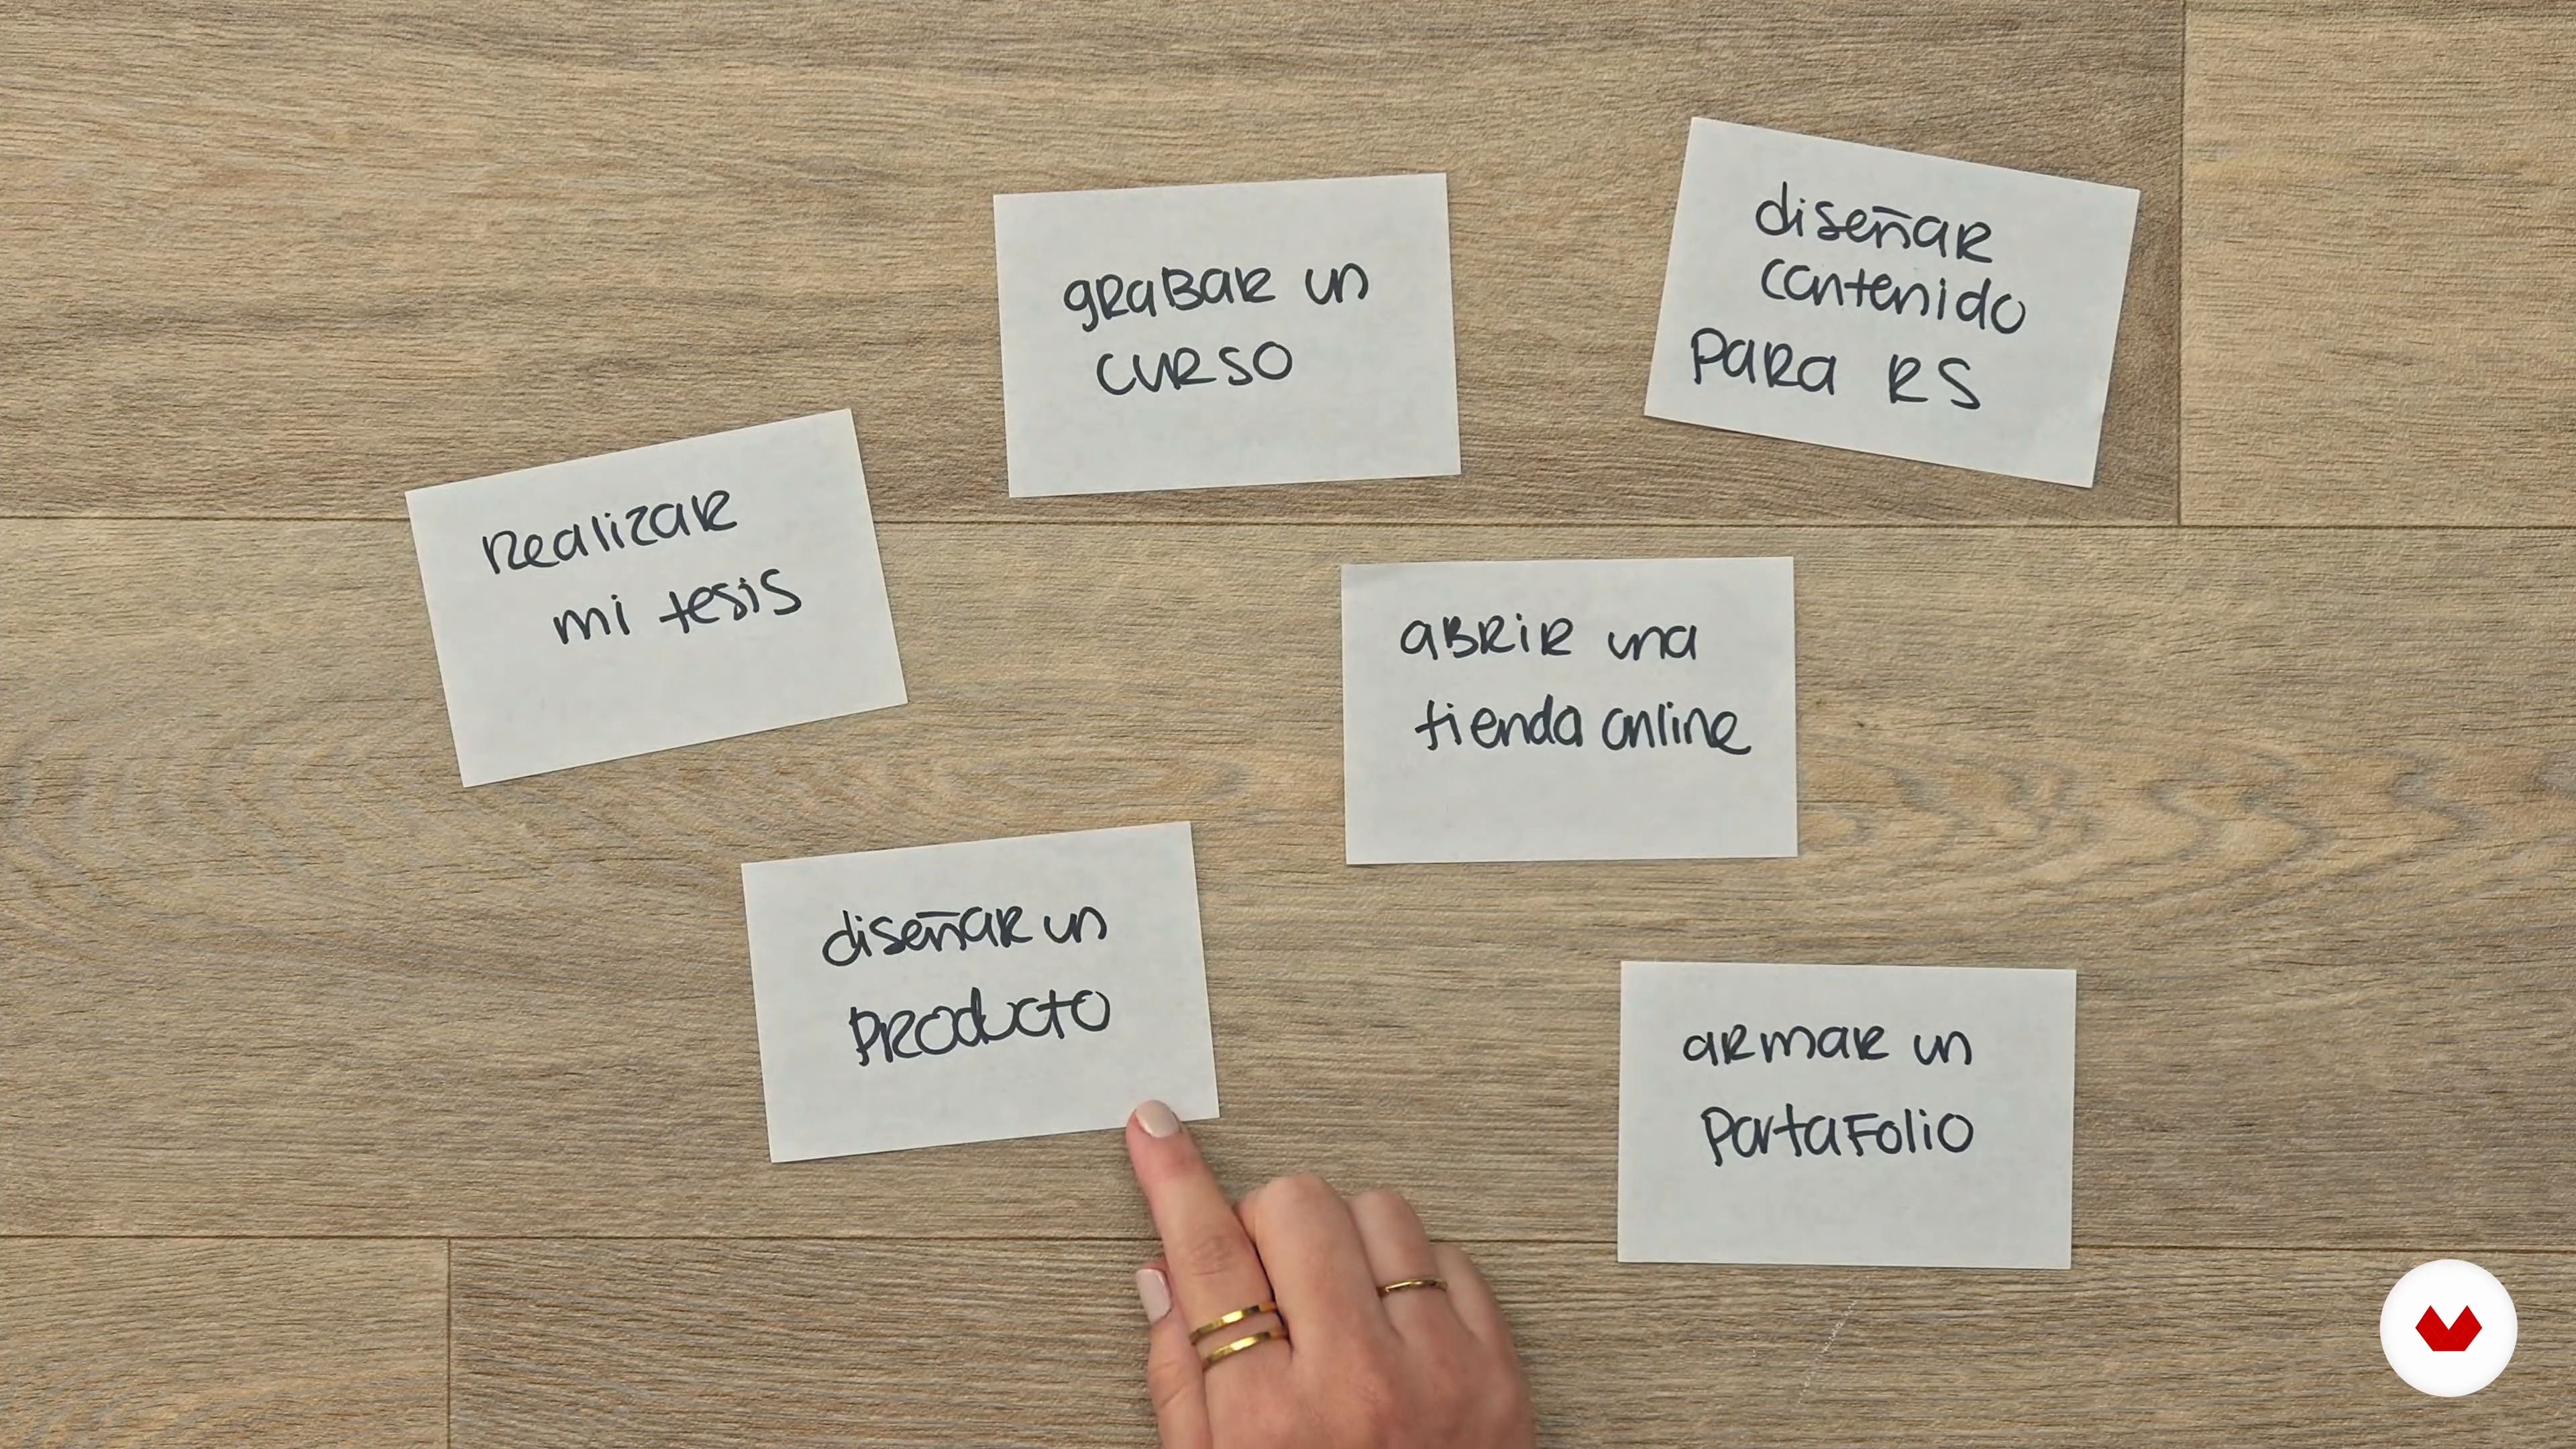 grabar un
curso
diseñar
contenido
para RS
realizar
mi tesis
abrir una
tienda online
diseñar un
producto
armar un
portafolio